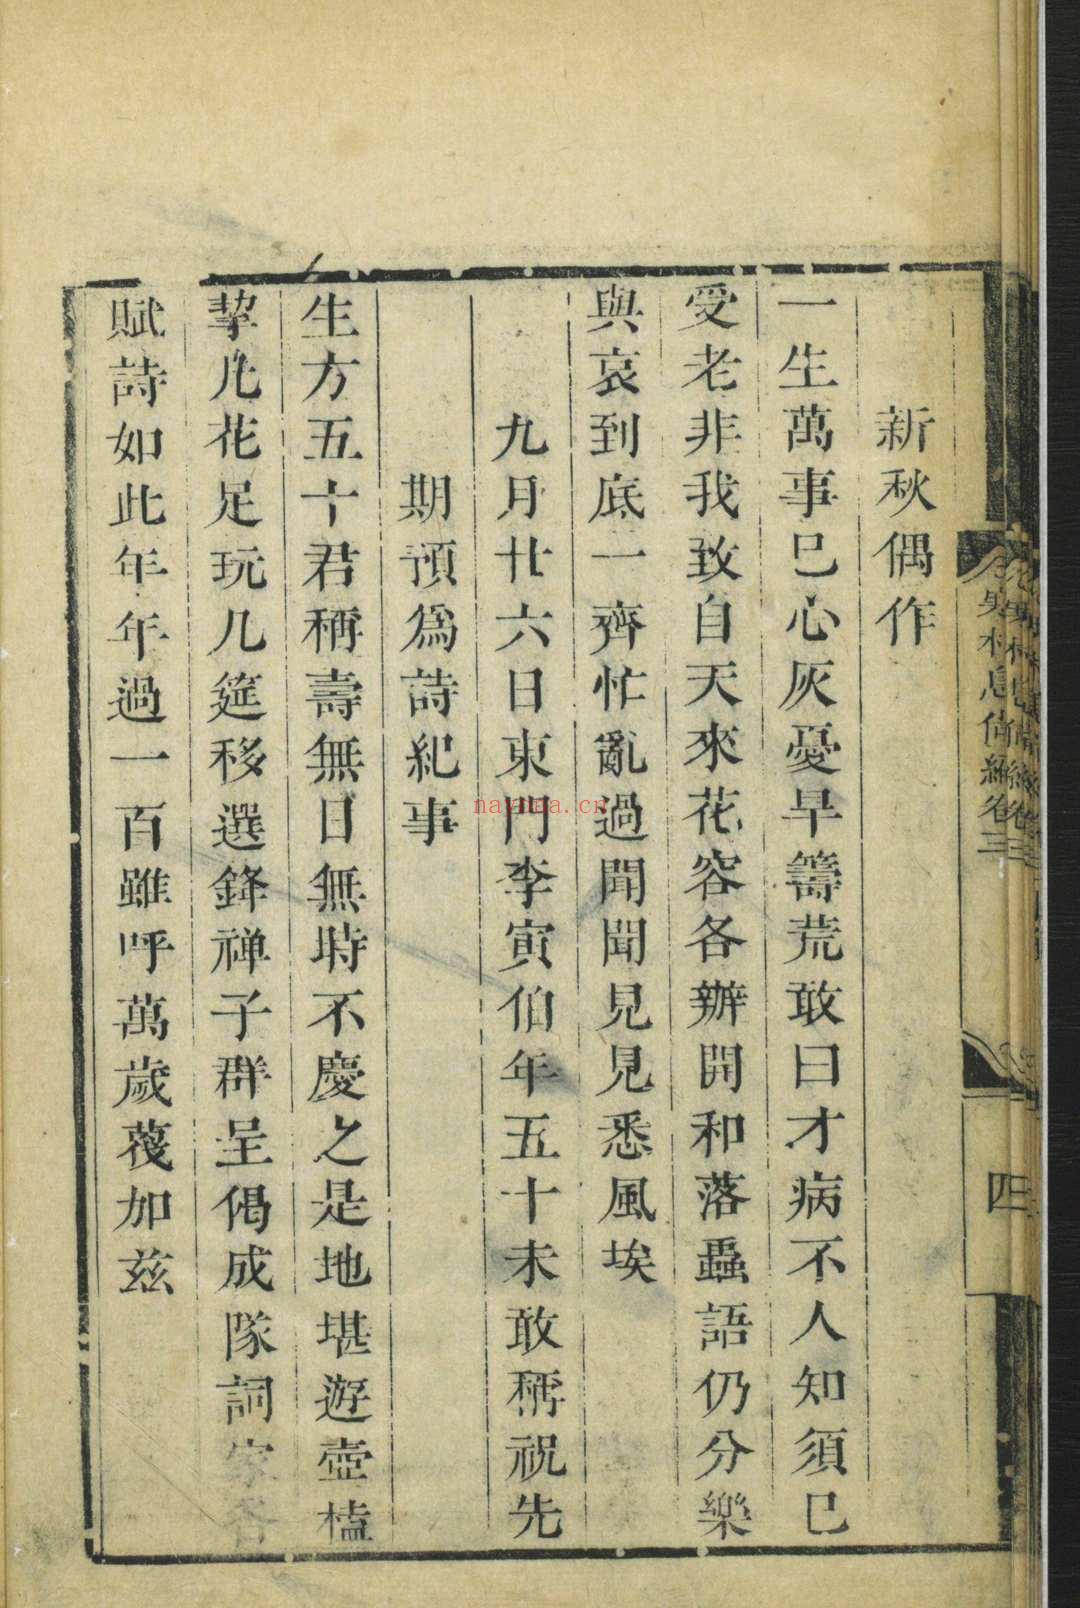 新秋偶作
一生萬事已心灰憂早籌荒敢曰才病不人知須已
受老非我致自天來花容各辦開和落蟲語仍分樂
與哀到底一齊忙亂過聞聞見見悉風埃
九月廿六日東門李寅伯年五十未敢稱祝先
期預為詩紀事
生方五十君稱壽無日無時不慶之是地堪遊壺榼
挈凢花足玩几筵移選鋒禅子群呈偈成隊詞家各
賦詩如此年年過一百雖呼萬歲蔑加茲
卷三
四
naynna.cn